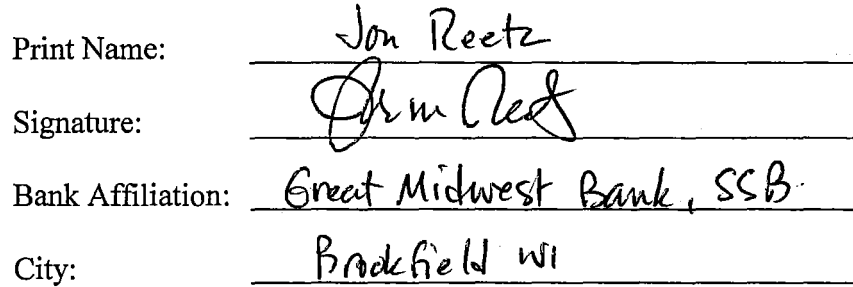 Print Name: Jon Reetz
Signature:
Bank Affiliation: Great Midwest Bank, SSB
City: Brookfield WI